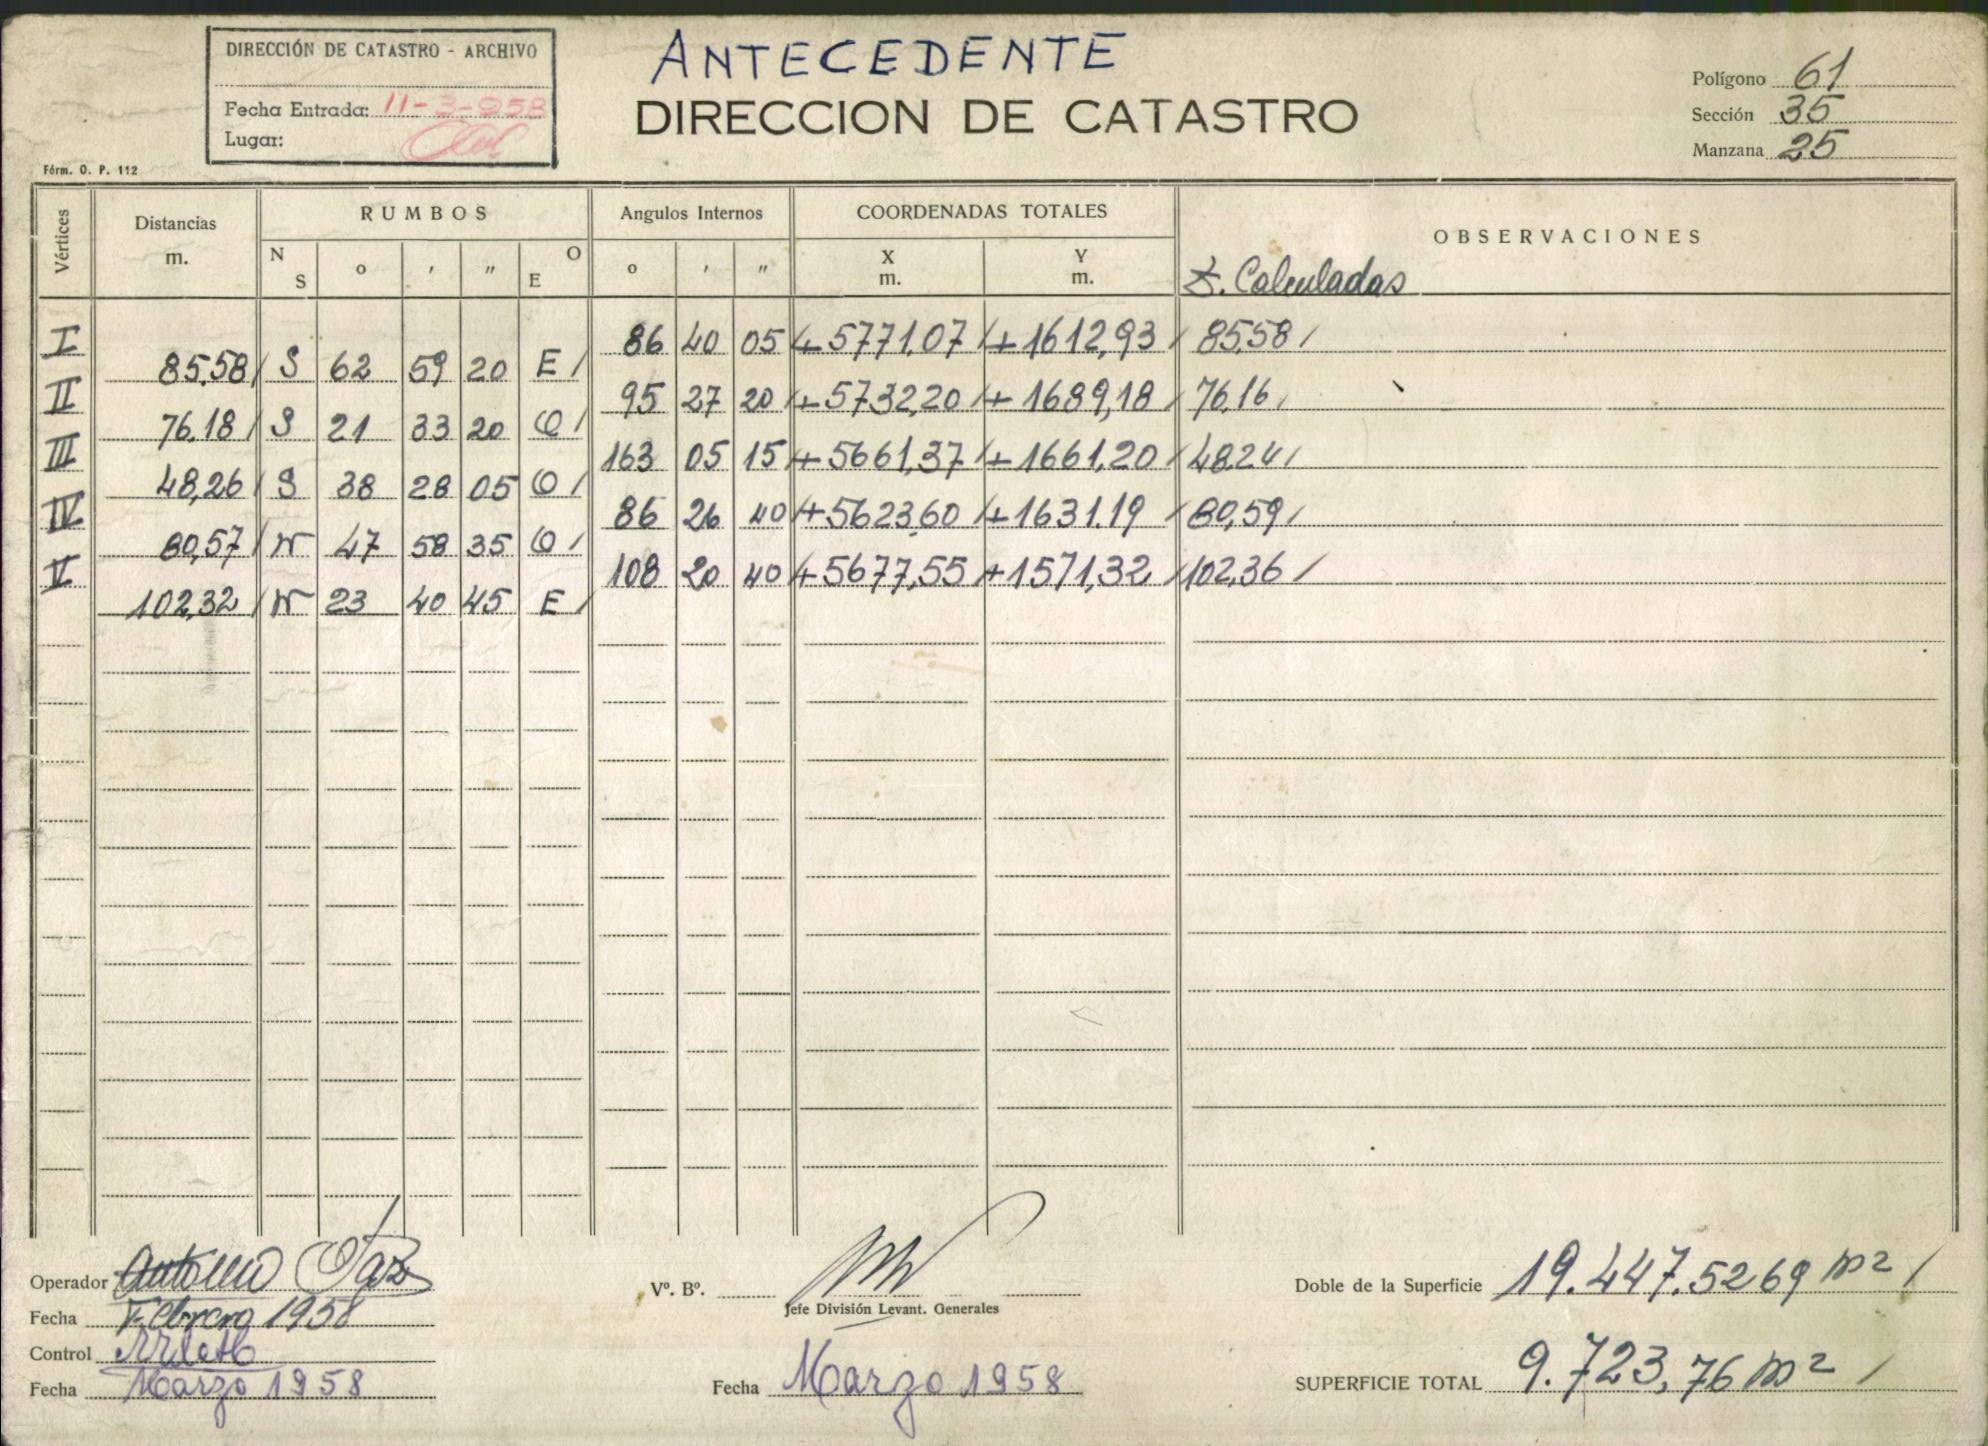 DIRECCIÓN DE CATASTRO - ARCHIVO
Fecha Entrada: 11-3-958
Lugar:
Fórm. O. P. 112
ANTECEDENTE
DIRECCION DE CATASTRO
Polígono 61
Sección 35
Manzana 25
Vértices Distancias m. RUMBOS Angulos Internos COORDENADAS TOTALES OBSERVACIONES
N S o ' " O E o ' " X m. Y m.
Calculadas
I 86 40 05 +5771,07 +1612,93 85,58
85,58 S 62 59 20 E
II 95 27 20 +5732,20 +1689,18 76,16
76,18 S 21 33 20 O
III 163 05 15 +5661,37 +1661,20 48,24
48,26 S 38 28 05 O
IV 86 26 40 +5623,60 +1631,19 80,59
80,57 N 47 58 35 O
V 108 20 40 +5677,55 +1571,32 102,36
102,32 N 23 40 45 E
Operador Antonio
Fecha Febrero 1958
Control
Fecha Marzo 1958
Vº. Bº.
Jefe División Levant. Generales
Fecha Marzo 1958
Doble de la Superficie 19.447.5269 m2
SUPERFICIE TOTAL 9.723,76 m2